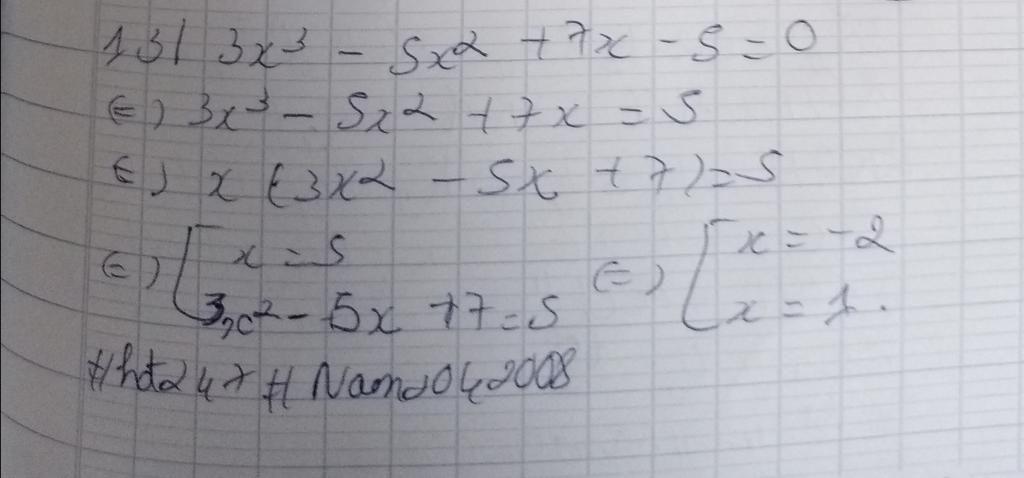 13/ 3x³ - 5x² + 7x - 5 = 0
⇔ 3x³ - 5x² + 7x = 5
⇔ x (3x² - 5x + 7) = 5
⇔ [ x = 5 ; 3x² - 5x + 7 = 5 ⇔ [ x = -2 ; x = 1.
#hdt247 #Nam2042008